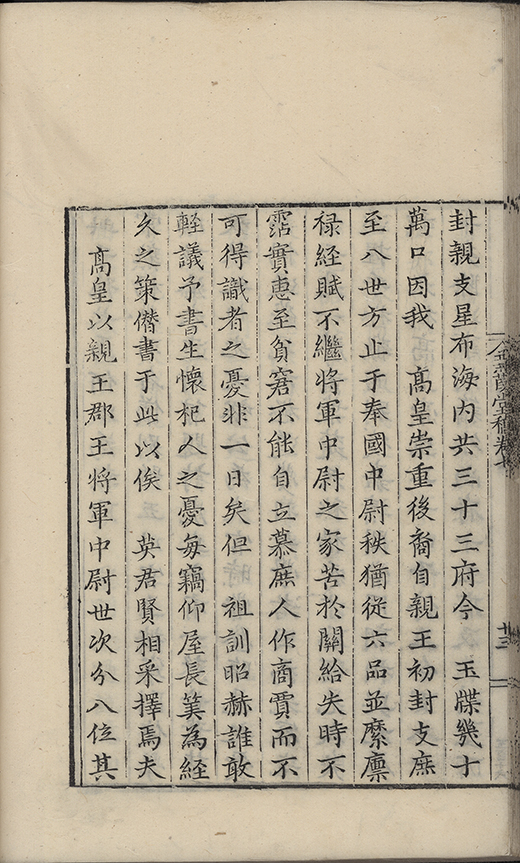 封親支星布海内共三十三府今　玉牒幾十
萬口因我　高皇崇重後裔自親王初封支庶
至八世方止于奉國中尉秩猶從六品並縻廪
禄経賦不繼將軍中尉之家苦於關給失時不
霑實惠至貧窘不能自立慕庶人作商賈而不
可得識者之憂非一日矣但　祖訓昭赫誰敢
輕議予書生懷杞人之憂每竊仰屋長筭為経
久之策僭書于此以俟　英君賢相采擇焉夫
高皇以親王郡王將軍中尉世次分八位其
堂稿卷七